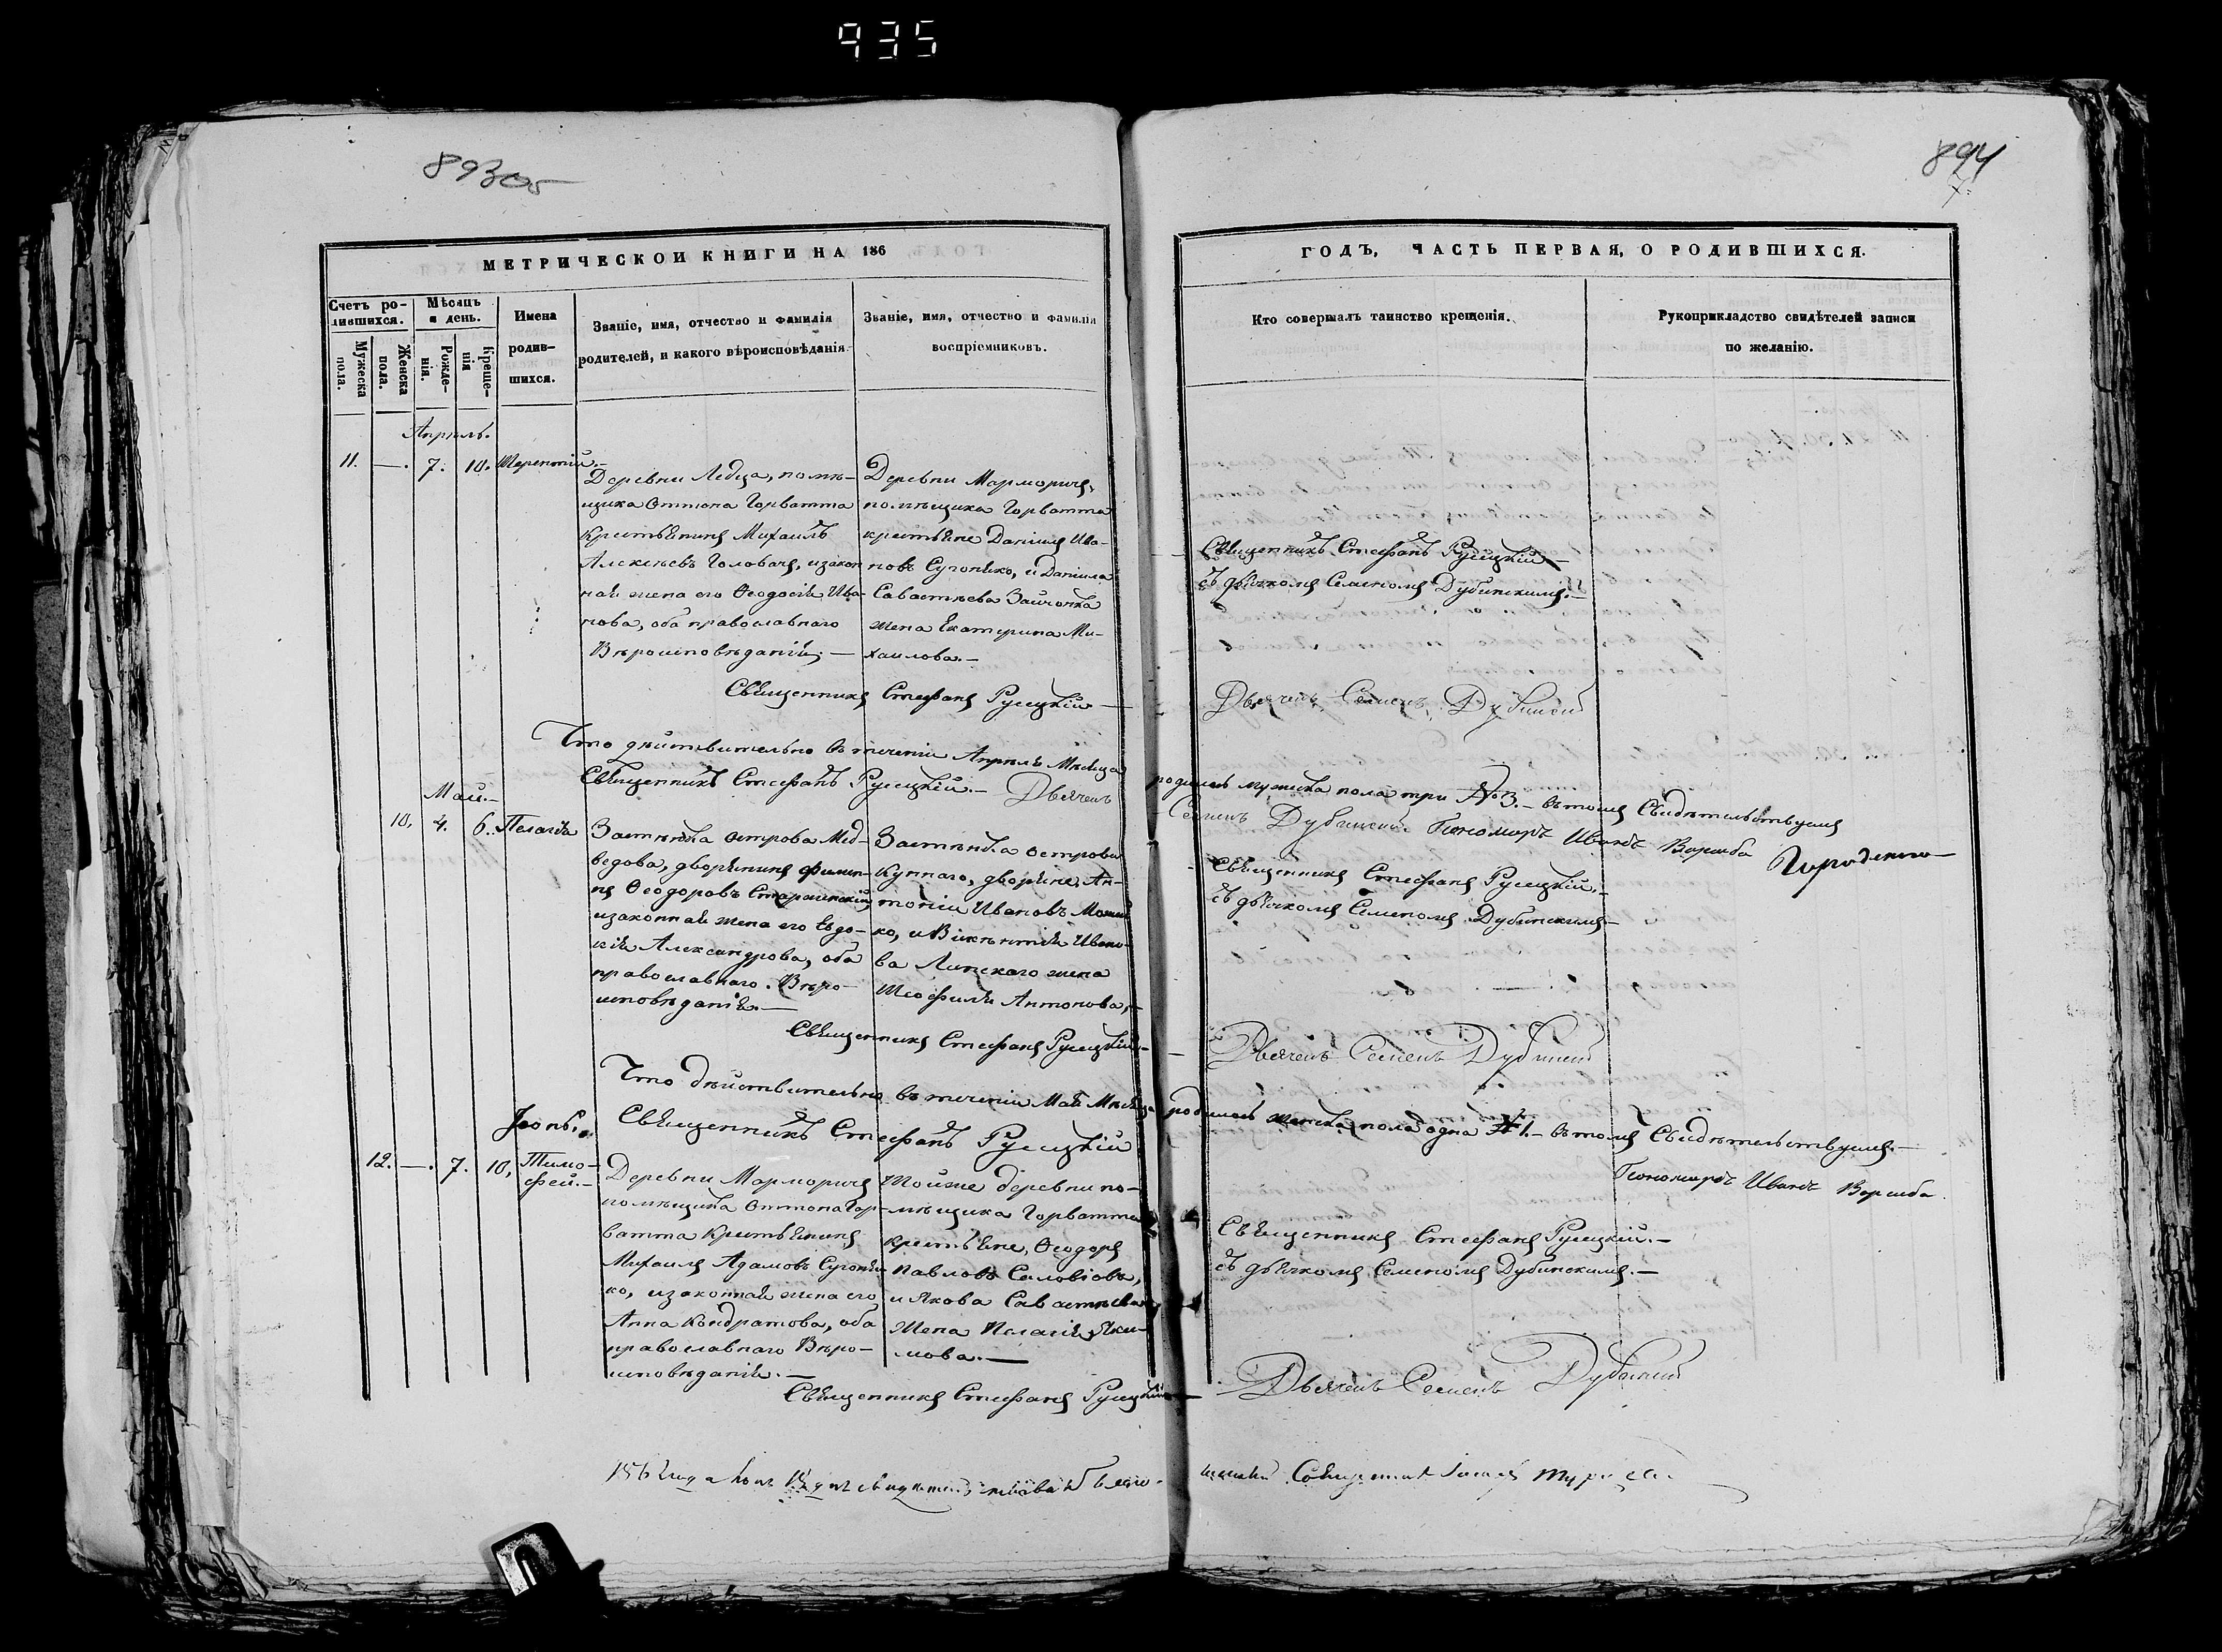 935
893об
894
7.
МЕТРИЧЕСКОЙ КНИГИ НА 186
ГОДЪ, ЧАСТЬ ПЕРВАЯ, О РОДИВШИХСЯ.
Счетъ родившихся.
Мужеска пола.
Женска пола.
Мѣсяцъ и день.
Рожденія.
Крещенія
Имена родившихся.
Званіе, имя, отчество и фамилія
родителей, и какого вѣроисповѣданія.
Званіе, имя, отчество и фамилія
воспріемниковъ.
Кто совершалъ таинство крещенія.
Рукоприкладство свидѣтелей записи
по желанію.
Апрѣль.
11. — . 7. 10. Терентій.—
Деревни Ледца, помѣ-
щика Оттона Горватта
крестьянинъ Михаилъ
Алексѣевъ Головачъ, и закон
ная жена его Ѳеодосія Ива-
нова, оба православнаго
Вѣроисповѣданія. —
Деревни Марморичъ,
помѣщика Горватта
крестьяне Даніилъ Ива-
новъ Сугоняко, и Даніила
Савастѣева Зайчонка
жена Екатерина Ми-
хаилова.—
Священникъ Стефанъ Русецкій —
съ дьячкомъ Семеномъ Дубинскимъ.—
Священникъ Стефанъ Русецкій —
Дьячекъ Семенъ Дубинскій
Что дѣйствительно въ теченіи Апрѣля Мѣсяца родилось мужеска пола три №3.— въ томъ Свидѣтельствуемъ
Священникъ Стефанъ Русецкій.— Дьячекъ Семенъ Дубинскій. Пономарь Иванъ Ворыба
Май.—
10. 4. 6. Пелагія
Застѣнка Острова Мед-
ведова, дворянинъ Филип-
пъ Ѳеодоровъ Старжинскій,
и законная жена его Евдо-
кія Александрова, оба
православнаго Вѣро-
исповѣданія.—
Застѣнка Острова
Купнаго, дворяне, Ан-
тоній Ивановъ
ко, и Викентія Ивано-
ва Липскаго жена
Теофилія Антонова,—
Священникъ Стефанъ Русецкій.—
съ дьячкомъ Семеномъ Дубинскимъ—
Священникъ Стефанъ Русецкій.—
Дьячекъ Семенъ Дубинскій
Что дѣйствительно въ теченіи Мая Мѣсяца родилось женска пола одна №1.— въ томъ Свидѣтельствуемъ.—
Священникъ Стефанъ Русецкій
Пономарь Иванъ Ворыба.
Іюнь.
12. — . 7. 10. Тимо-
фей.—
Деревни Марморичъ
помѣщика Оттона Гор-
ватта крестьянинъ
Михаилъ Адамовъ Сугоня-
ко, и законная жена его
Анна Кондратова, оба
православнаго Вѣро-
исповѣданія.—
Той же деревни по-
мѣщика Горватта
крестьяне, Ѳеодоръ
Павловъ Саловіовъ,
и Якова Савастѣева
жена Пелагія Яки-
мова.—
Священникъ Стефанъ Русецкій.—
съ дьячкомъ Семеномъ Дубинскимъ.—
Священникъ Стефанъ Русецкій —
Дьячекъ Семенъ Дубинскій